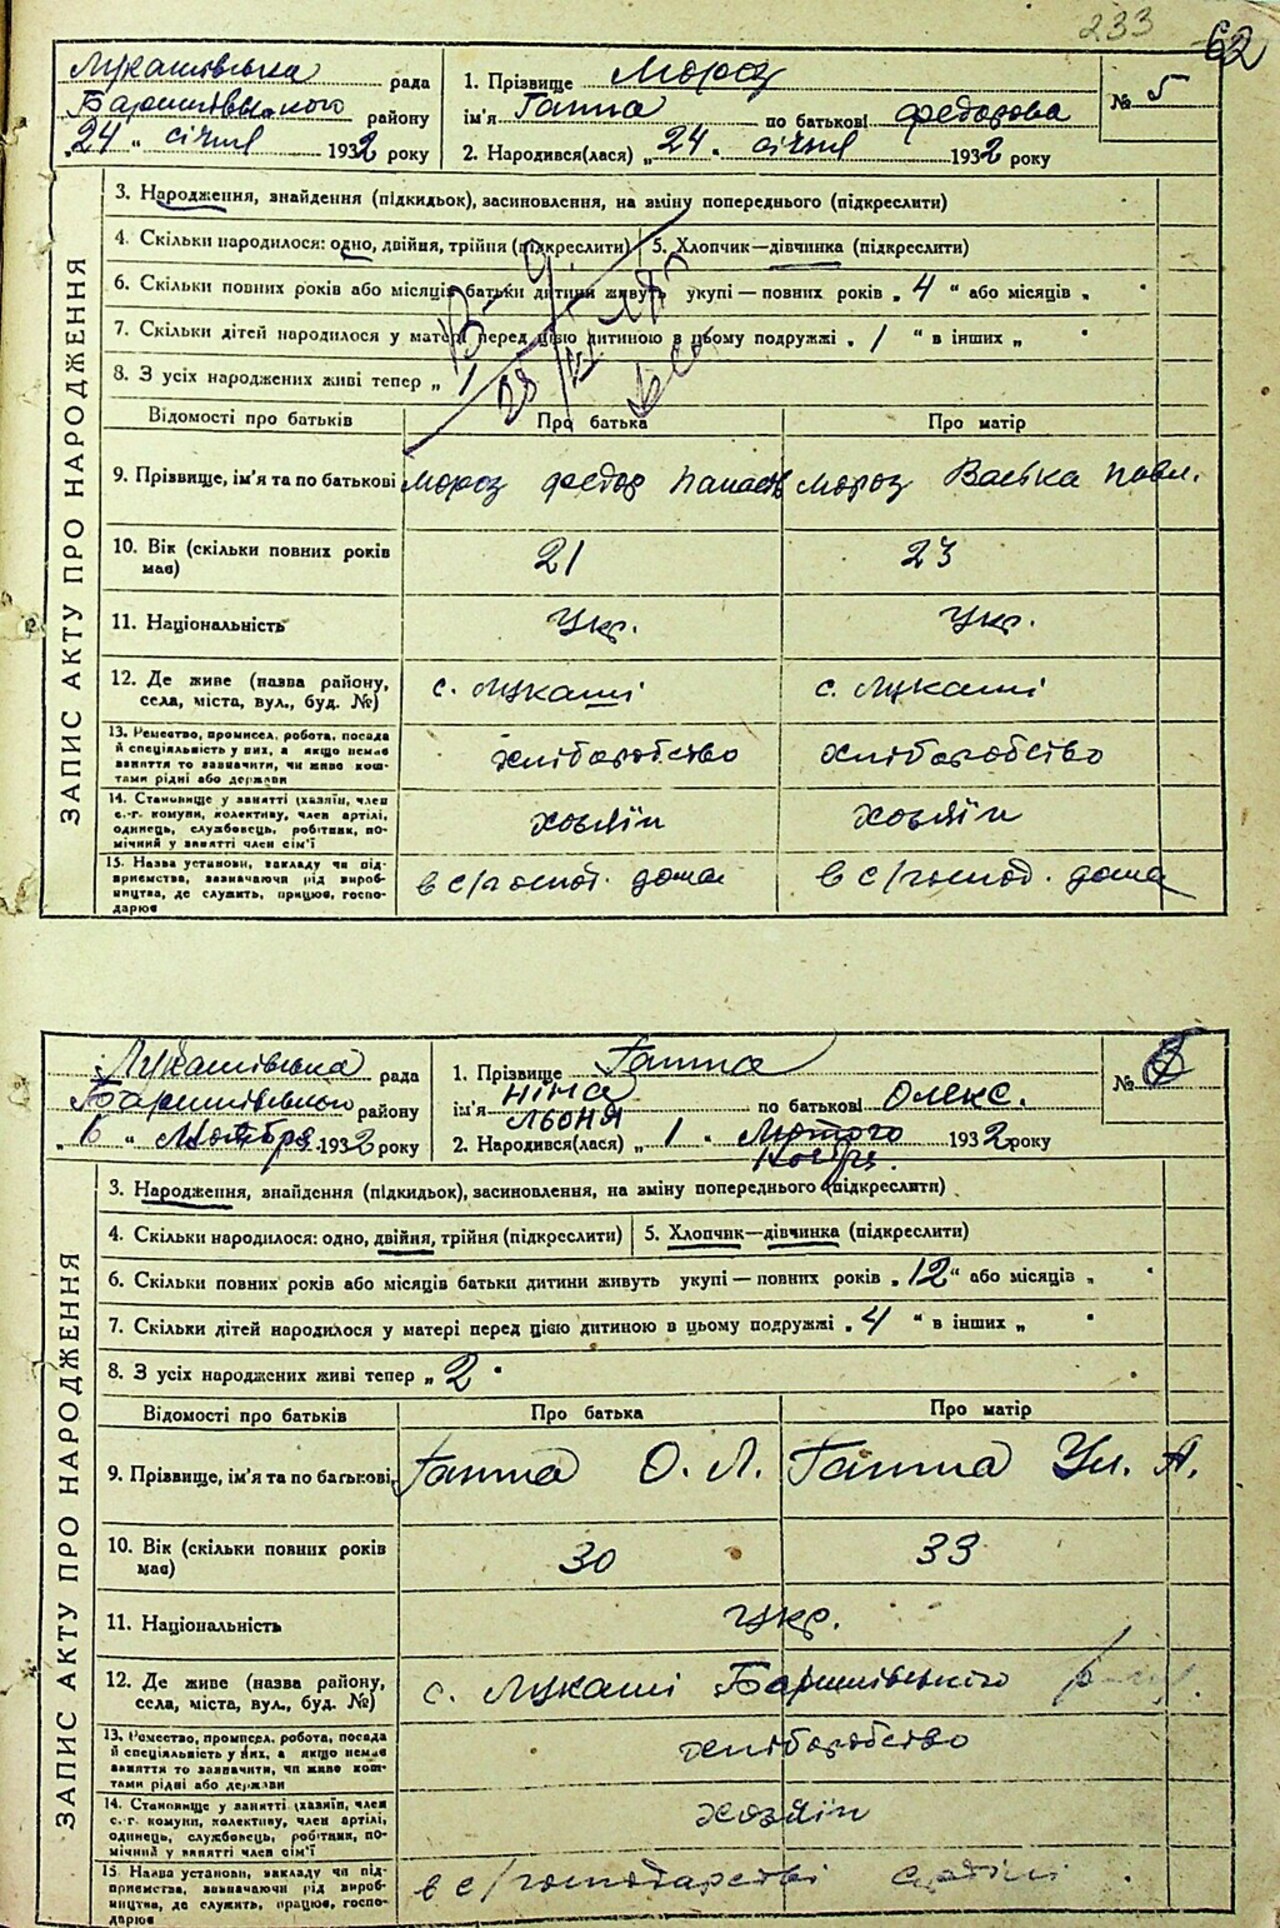 233 62
Лукашівська рада
Баришівського району
„24" січня 1932 року
1. Прізвище Мороз
ім'я Ганна по батькові Федорова
2. Народився(лася) „24" січня 1932 року
№ 5
ЗАПИС АКТУ ПРО НАРОДЖЕННЯ
3. Народження, знайдення (підкидьок), засиновлення, на зміну попереднього (підкреслити)
4. Скільки народилося: одно, двійня, трійня (підкреслити) 5. Хлопчик—дівчинка (підкреслити)
6. Скільки повних років або місяців батьки дитини живуть укупі — повних років „4" або місяців „ "
7. Скільки дітей народилося у матері перед цією дитиною в цьому подружжі „1" в інших „ "
8. З усіх народжених живі тепер „1"
Відомості про батьків Про батька Про матір
9. Прізвище, ім'я та по батькові Мороз Федор Панасів Мороз Васька Павл.
10. Вік (скільки повних років має) 21 23
11. Національність Укр. Укр.
12. Де живе (назва району, села, міста, вул., буд. №) с. Лукаші с. Лукаші
13. Ремество, промисел, робота, посада й спеціяльність у них, а якщо немає заняття то зазначити, чи живе коштами рідні або держави хліборобство хліборобство
14. Становище у занятті (хазяїн, член с.-г. комуни, колективу, член артілі, одинець, службовець, робітник, помічний у занятті член сім'ї хозяїн хозяїн
15. Назва установи, закладу чи підприємства, зазначаючи рід виробництва, де служить, працює, господарює в с/господ. дома в с/господ. дома
Лукашівська рада
Баришівського району
„6" Ноября 1932 року
1. Прізвище Ганна
ім'я Ніна Льоня по батькові Олекс.
2. Народився(лася) „1" Лютого Ноября 1932 року
№ 6
ЗАПИС АКТУ ПРО НАРОДЖЕННЯ
3. Народження, знайдення (підкидьок), засиновлення, на зміну попереднього (підкреслити)
4. Скільки народилося: одно, двійня, трійня (підкреслити) 5. Хлопчик—дівчинка (підкреслити)
6. Скільки повних років або місяців батьки дитини живуть укупі — повних років „12" або місяців „ "
7. Скільки дітей народилося у матері перед цією дитиною в цьому подружжі „4" в інших „ "
8. З усіх народжених живі тепер „2"
Відомості про батьків Про батька Про матір
9. Прізвище, ім'я та по батькові Ганна О. Л. Ганна Ул. А.
10. Вік (скільки повних років має) 30 33
11. Національність Укр.
12. Де живе (назва району, села, міста, вул., буд. №) с. Лукаші Баришівського
13. Ремество, промисел, робота, посада й спеціяльність у них, а якщо немає заняття то зазначити, чи живе коштами рідні або держави хліборобство
14. Становище у занятті (хазяїн, член с.-г. комуни, колективу, член артілі, одинець, службовець, робітник, помічний у занятті член сім'ї хозяїн
15. Назва установи, закладу чи підприємства, зазначаючи рід виробництва, де служить, працює, господарює в с/господарстві